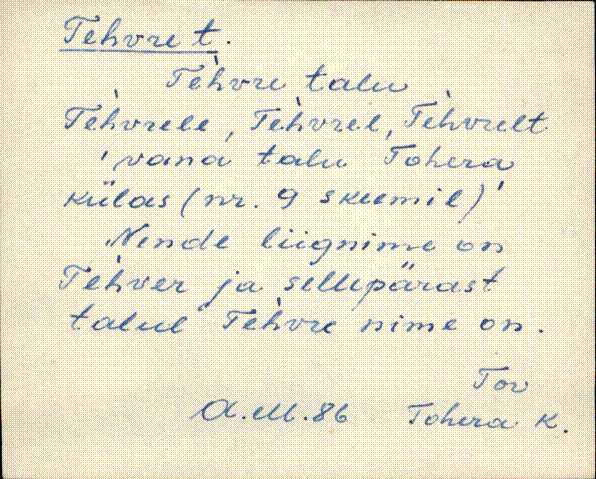 Tehvre t.
Tèhvre talu
Tèhvrele, Tèhvrel, Tèhvrelt
'vana talu Tohera
külas (nr. 9 skeemil)'
„Nende liignime on
Tèhver ja sellepärast
talul Tèhvre nime on.
Tov
A.M.86 Tohera K.